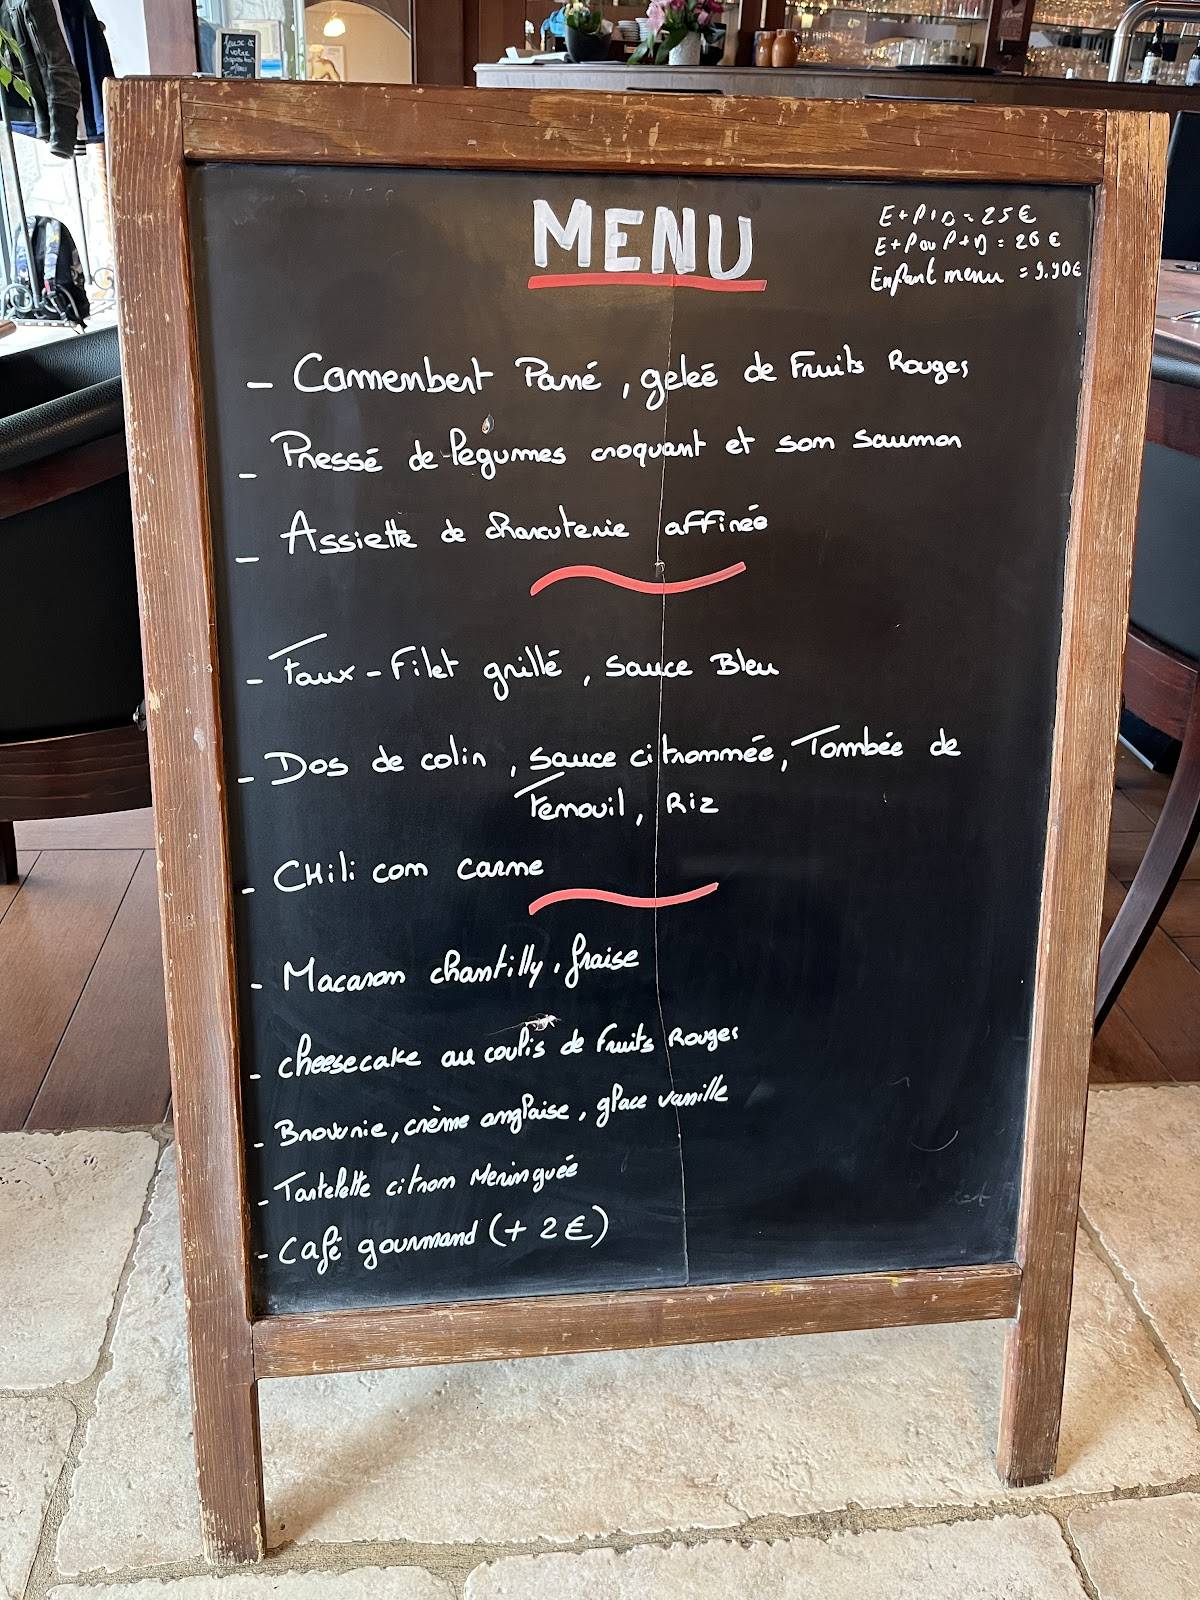 MENU
E+P+D = 25€
E+P ou P+D = 20€
Enfant menu = 9.90€
- Camembert Pané, geleé de Fruits Rouges
- Pressé de légumes croquant et son saumon
- Assiette de charcuterie affinée
- Faux-Filet grillé, sauce Bleu
- Dos de colin, sauce citronnée, Tombée de
Fenouil, Riz
- CHili con carne
- Macaron chantilly, fraise
- cheesecake au coulis de Fruits Rouges
- Brownie, crème anglaise, glace vanille
- Tartelette citron Meringuée
- Café gourmand (+ 2€)